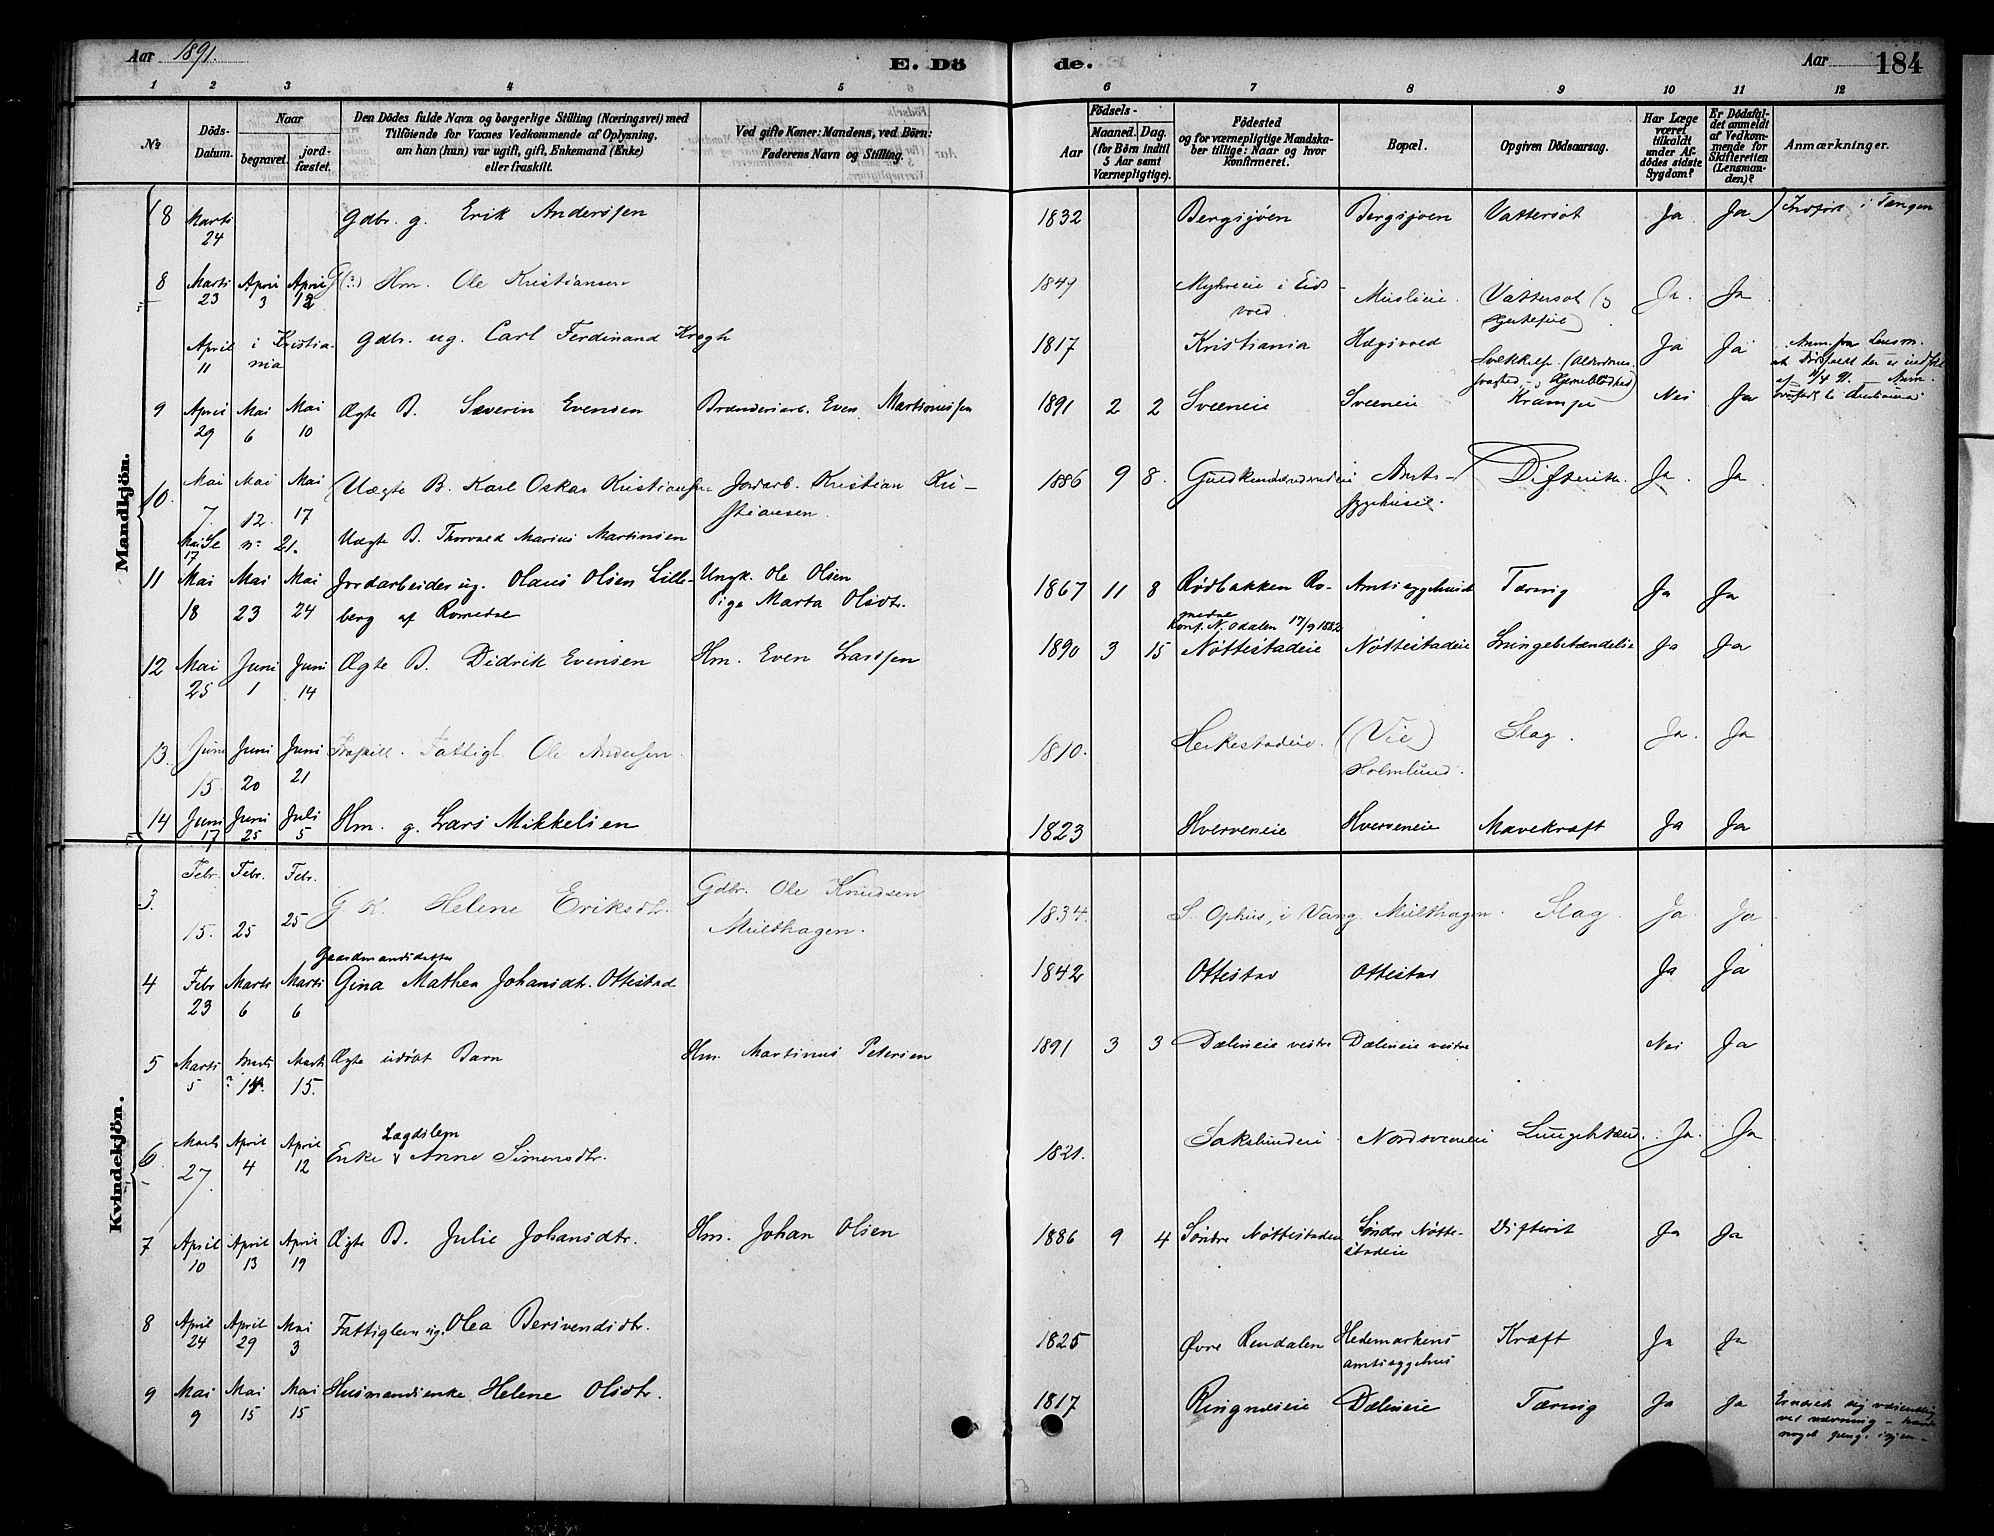 Aar 1891.
E. Dö de.
Aar 184
1 2 3 4 5 6 7 8 9 10 11 12
№
Döds-Datum.
Naar
begravet.
jord-fæstet.
Den Dödes fulde Navn og borgerlige Stilling (Næringsvei) med
Tilföiende for Voxnes Vedkommende af Oplysning,
om han (hun) var ugift, gift, Enkemand (Enke)
eller fraskilt.
Ved gifte Koner: Mandens, ved Börn:
Faderens Navn og Stilling.
Födsels-
Aar
Maaned. Dag.
(for Börn indtil
5 Aar samt
Værnepligtige).
Födested
og for værnepligtige Mandska-
ber tillige: Naar og hvor
konfirmeret.
Bopæl.
Opgiven Dödsaarsag.
Har Læge
været
tilkaldt
under Af-
dödes sidste
Sygdom?
Er Dödsfal-
det anmeldt
af Vedkom-
mende for
Skifteretten
(Lensman-
den)?
Anmærkninger.
Mandkjön.
(8 Marts 24 Gdbr. g. Erik Anderssen 1832 Bergsjøen Bergsjøen Vattersot Ja Ja) Indført i Tangen
8 Marts 23 April 3 April 12 Hm. Ole Kristiansen 1849 Myhreie i Eids-
vold Muslieie Vattersot Ja. Ja
April 11 i Kristia-
nia Gdbr. ug. Carl Ferdinand Krogh 1817 Kristiania Hægsvold Ja Ja
9 April 29 Mai 6 Mai 10 Ægte B. Severin Evensen Brænderiarb. Even Martinussen 1891 2 2 Sveeneie Sveeneie Krampe Nei Ja
10. Mai 7. Mai 12. Mai 17 (Uægte B. Karl Oskar Kristiansen Jordarb. Kristian Kri-
stiansen 1886 9 8. Amts-
sygehuset Difterit Ja. Ja.
Mai 17 Se nr 21. Uægte B. Thorvald Marius Martinsen
11 Mai 18 Mai 23 Mai 24 Jordarbeider ug. Olaus Olsen Lille-
berg af Romedal Ungk. Ole Olsen
Pige Marta Olsdtr. 1867 11 8 Rødbakken Ro-
medal
Konf. N. Odalen 17/9 1882 Amtssygehuset Tæring Ja Ja
12 Mai 25 Juni 1 Juni 14 Ægte B. Didrik Evensen Hm. Even Larssen 1890 3 15 Nøttestadeie Nøttestadeie Lungebetændelse Ja Ja
13. Juni 15. Juni 20 Juni 21 Fraskilt. Fattigl. Ole Andersen 1810. (Vie)
Holmlund. Slag. Ja. Ja
14 Juni 17 Juni 25 Juli 5 Hm. g. Lars Mikkelsen 1823 Hverveneie Hverveneie Mavekræft Ja Ja
Kvindekjön.
3. Febr. 15. Febr. 25 Febr. 25 G. K. Helene Eriksdtr. Gdbr. Ole Knudsen
Multhagen. 1834. S. Ophus, i Vang Multhagen. Slag. Ja Ja
4 Febr 23 Marts 6 Marts 6 Gaardmandsdatter
Gina Mathea Johansdtr. Ottestad 1842 Ottestad Ottestad Ja Ja
5 Marts 5 Marts 14. Marts 15. Ægte udøbt Barn Hm. Martinus Petersen 1891 3 3 Dælineie vestre Dælineie vestre Nei Ja
6. Marts 27 April 4 April 12 Lægdslem
Enke Anne Simensdtr. 1821. Sakslundeie Nordsveneie Ja. Ja
7 April 10 April 13 April 19 Ægte B. Julie Johansdtr. Hm. Johan Olsen 1886 9 4 Søndre Nøttestadeie Søndre Nøtte-
stadeie Difterit Ja Ja
8 April 24 April 29 Mai 3 Fattiglem ug. Olea Bersvendsdtr. 1825 Øvre Rendalen Hedemarkens
amtssygehus Kræft Ja Ja
9 Mai 9 Mai 15 Mai 15 Husmandsenke Helene Olsdtr. 1817 Ringneseie Dælineie Tæring Ja Ja